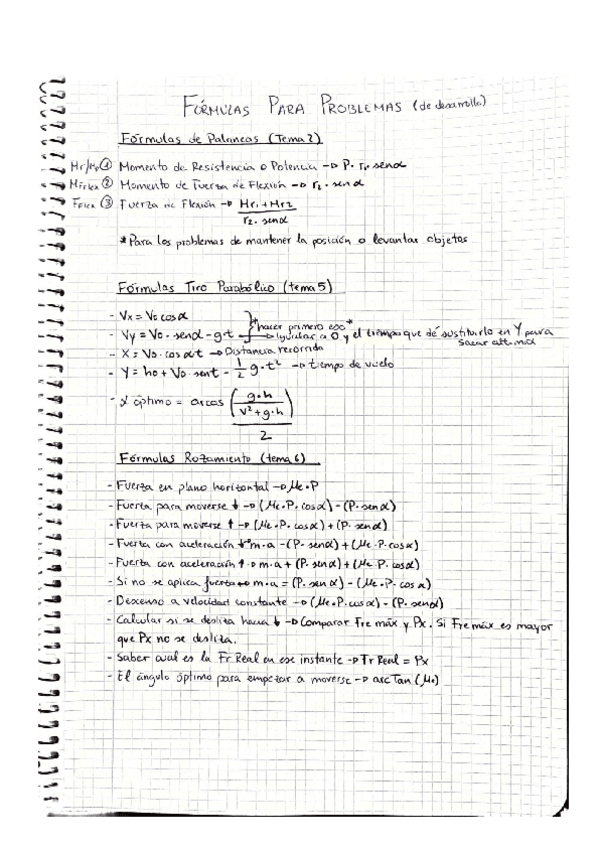 FÓRMULAS PARA PROBLEMAS (de desarrollo)
Fórmulas de Palancas (Tema 2)
Mr/Mp ① Momento de Resistencia o Potencia → P. r1. senα
MFflex ② Momento de Fuerza de Flexión → r2. senα
Fflex ③ Fuerza de Flexión → Mr1 + Mr2 / r2. senα
* Para los problemas de mantener la posición o levantar objetos
Fórmulas Tiro Parabólico (tema 5)
- Vx = Vo cosα
*hacer primero eso*
- Vy = Vo. senα - g.t → igualar a 0 y el tiempo que dé sustituirlo en Y para sacar altmax
- X = Vo. cosα t → Distancia recorrida
- Y = ho + Vo. sent - 1/2 g.t² → tiempo de vuelo
- α óptimo = arcos (g.h / V²+g.h) / 2
Fórmulas Rozamiento (tema 6)
- Fuerza en plano horizontal → Me.P
- Fuerza para moverse ↓ → (Me.P. cosα) - (P. senα)
- Fuerza para moverse ↑ → (Me.P. cosα) + (P. senα)
- Fuerza con aceleración ↓ → m.a - (P. senα) + (Mc.P. cosα)
- Fuerza con aceleración ↑ → m.a + (P. senα) + (Mc.P. cosα)
- Si no se aplica fuerza → m.a = (P. senα) - (Mc.P. cosα)
- Descenso a velocidad constante → (Mc.P. cosα) - (P. senα)
- Calcular si se desliza hacia ↓ → Comparar Fre máx y Px. Si Fre máx es mayor
que Px no se desliza.
- Saber cual es la Fr Real en ese instante → Fr Real = Px
- El ángulo óptimo para empezar a moverse → arcTan (Me)